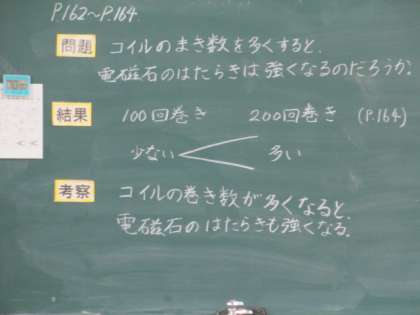 P.162〜P.164.
問題 コイルのまき数を多くすると、
電磁石のはたらきは強くなるのだろうか?
結果 100回巻き 200回巻き (P.164)
少ない < 多い
考察 コイルの巻き数が多くなると、
電磁石のはたらきも強くなる。